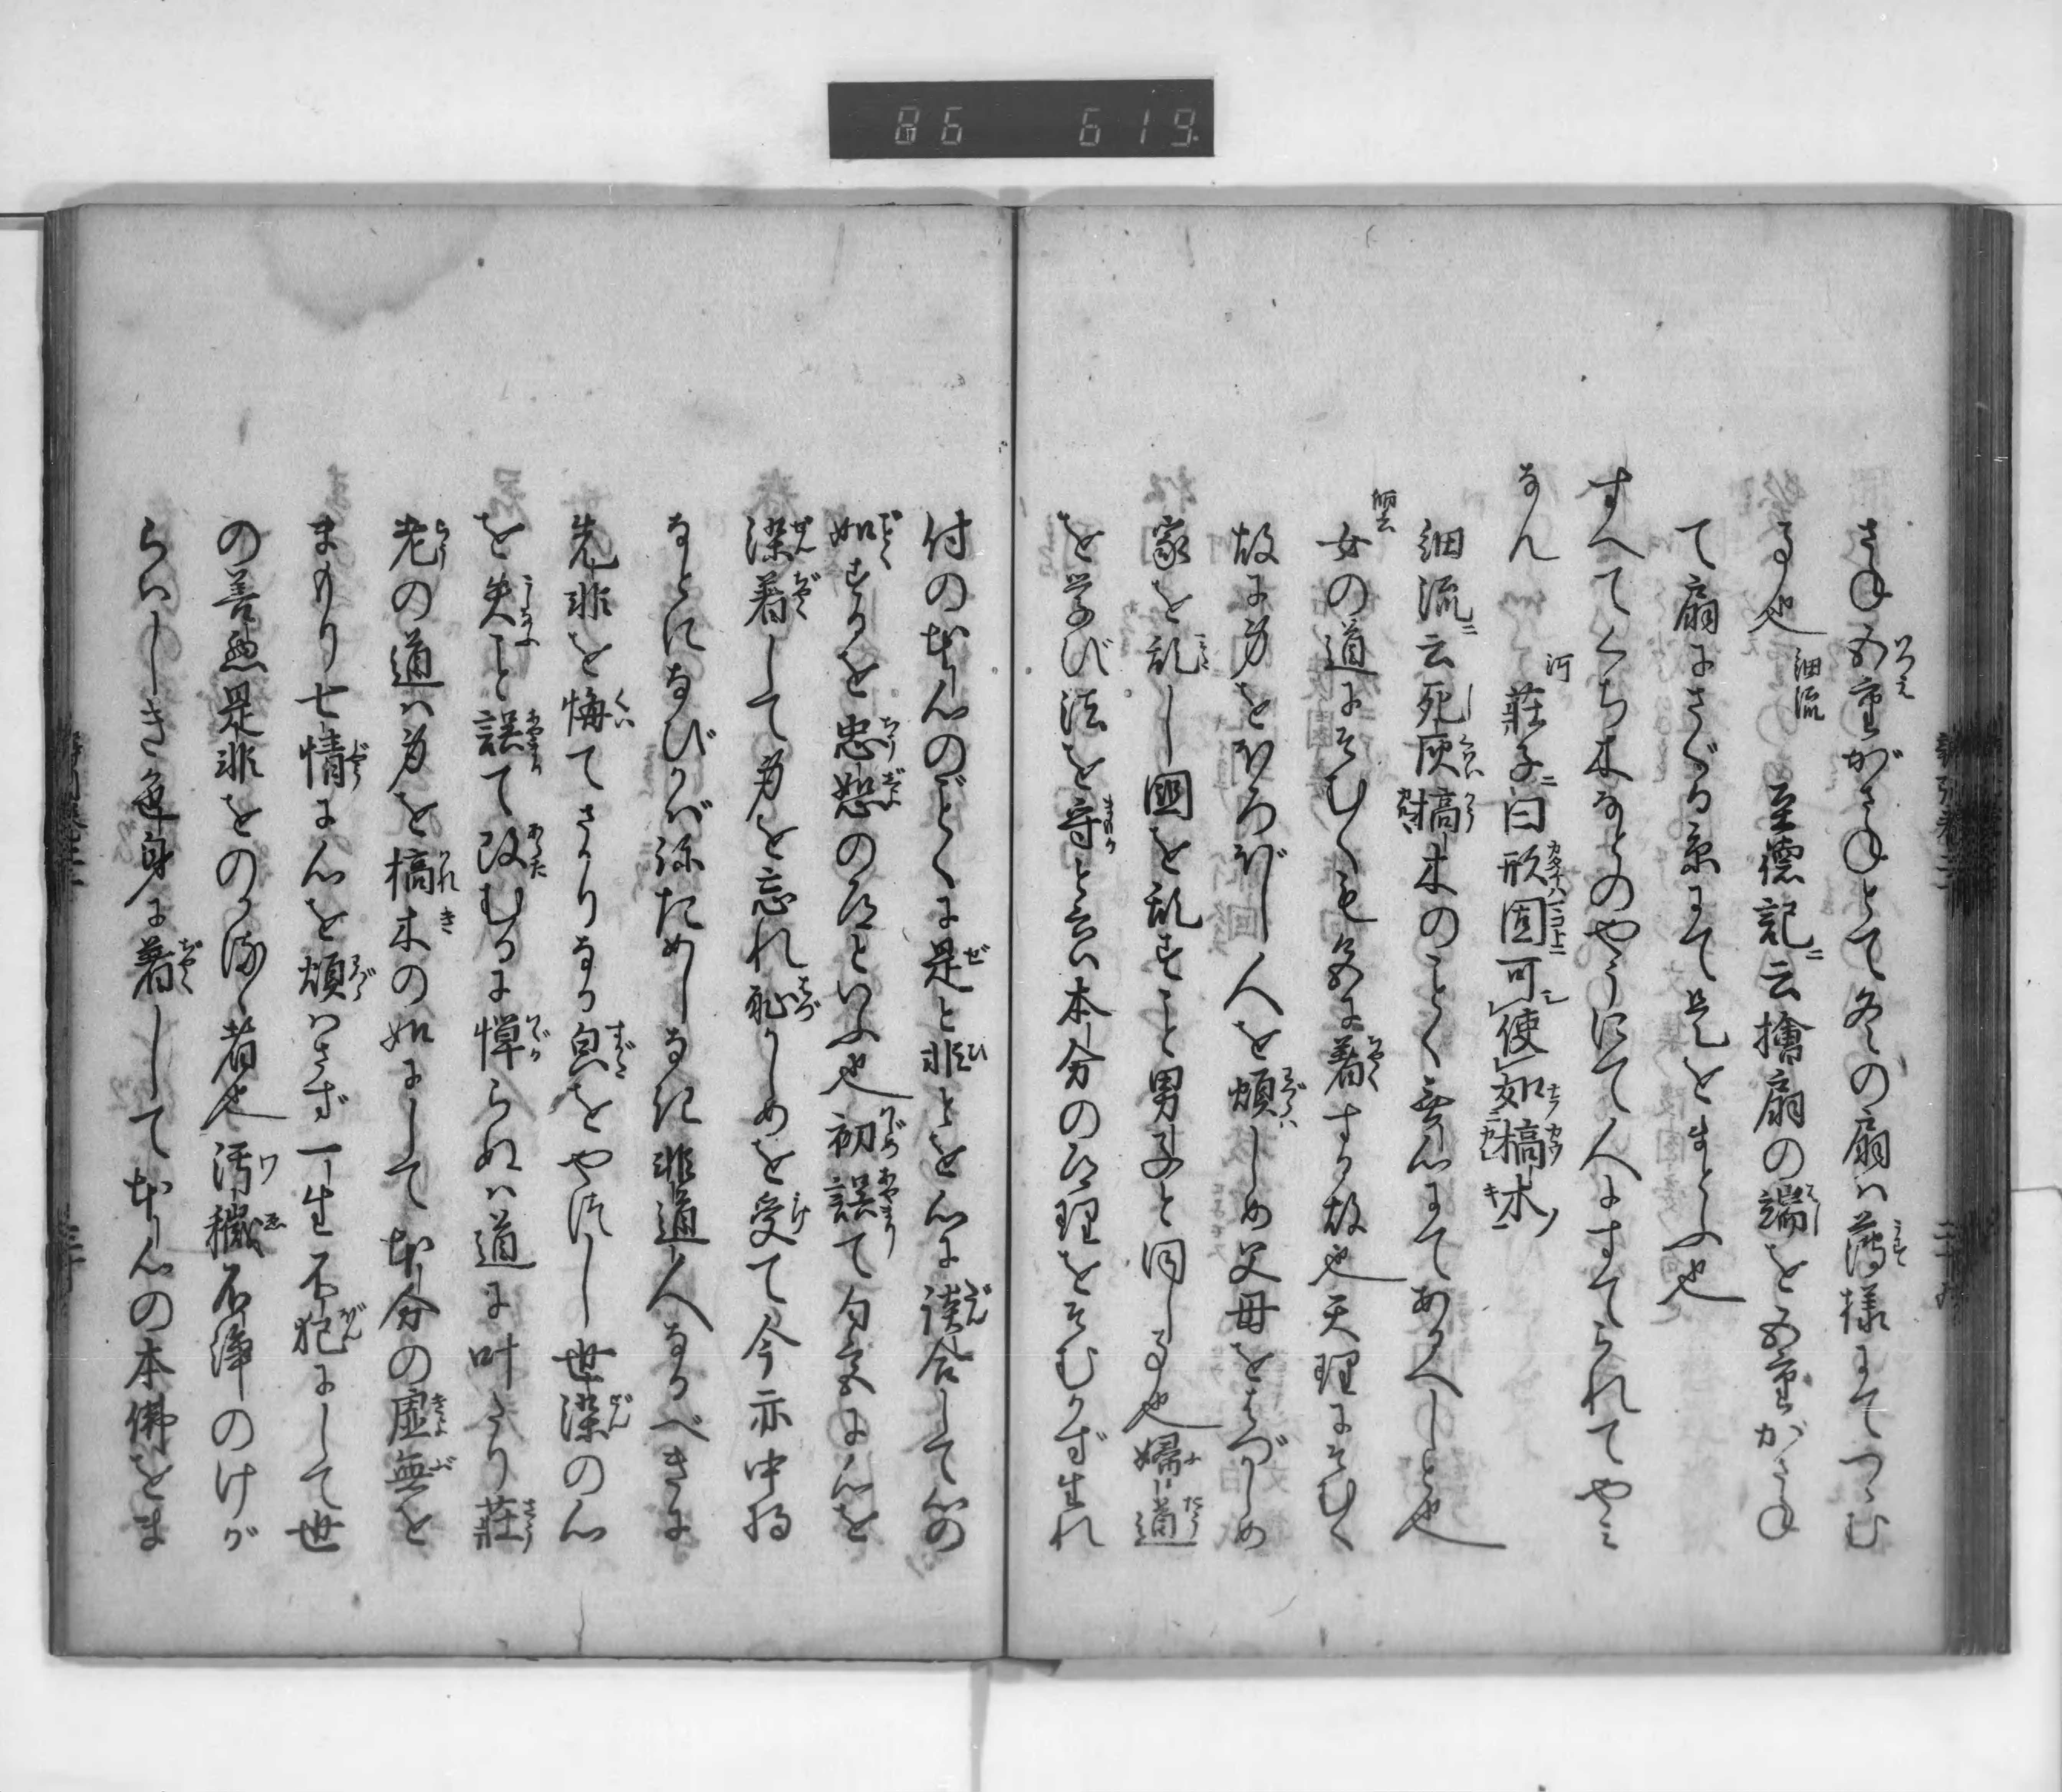 86 619
さね五重がさねとて冬の扇ハ薄様にてつゝむ
事也 細流 至徳記ニ云 檜扇の端を五重がさね
て扇にさぐる糸にて是をまとふ也
すべてくち木などのやうにて人にすてられてやみ
なん 河 荘子ニ曰 形固可使如槁木
細流ニ云 死灰槁木のことく無心にてあるへしと也
女の道にそむくも名に着する故也天理にそむく
故に身をほろぼし人を煩しめ父母をはづかしめ
家を乱し国を乱すこと男子と同し事也婦道
を学び法を守と云ハ本分の道理をそむかず生れ
付の本心のごとくに是と非とを心に談合して心の
如するを忠恕の道といふ也初誤て匂宮に心を
染着して身を忘れ恥かしめを受て今亦中将
などになびかば弥ためしなき非道人なるべきに
先非を悔てさりなる息をやすし世染の心
を失こと誤て改むるに憚らぬハ道に叶へり荘
老の道ハ身を槁木の如にして本分の虚無を
まもり七情に心を煩ハさず一生不犯にして世
の善悪是非をのがるゝ者也汚穢不浄のけが
らハしき色身に着して本心の本佛をま